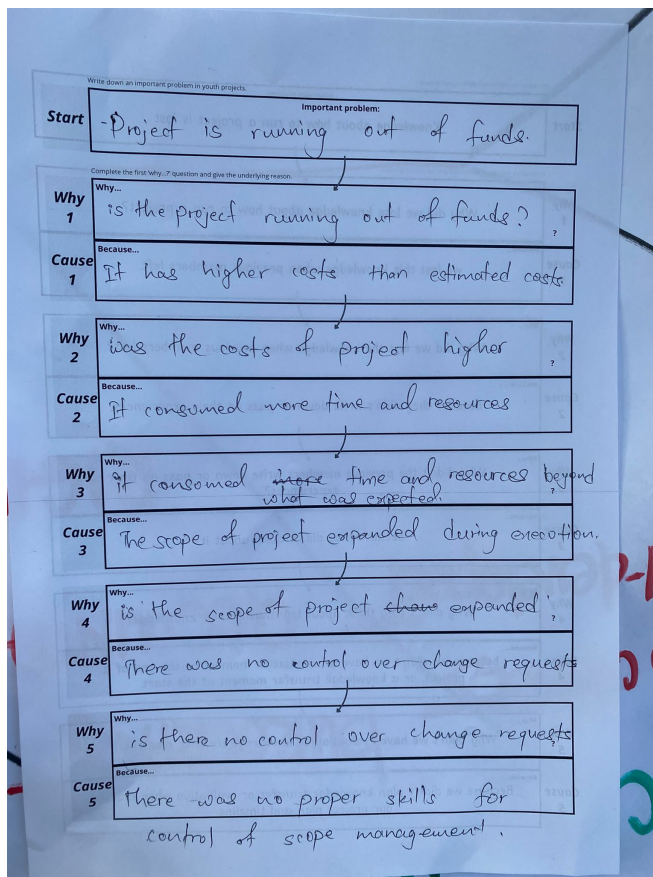 Write down an important problem in youth projects.
Start
Important problem:
-Project is running out of funds.
Complete the first 'why...?' question and give the underlying reason.
Why 1
Why...
is the project running out of funds?
?
Cause 1
Because...
It has higher costs than estimated costs
Why 2
Why...
was the costs of project higher
?
Cause 2
Because...
It consumed more time and resources
Why 3
Why...
it consumed more time and resources beyond
what was expected.
?
Cause 3
Because...
The scope of project expanded during execution.
Why 4
Why...
is the scope of project expanded
?
Cause 4
Because...
There was no control over change requests
Why 5
Why...
is there no control over change requests
?
Cause 5
Because...
There was no proper skills for
control of scope management.